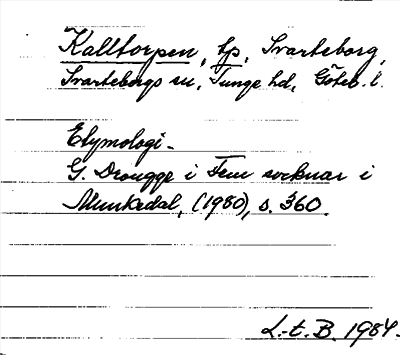 Kalltorpen, tp, Svarteborg,
Svarteborgs sn, Tunge hd, Göteb. l.
Etymologi-
G. Drougge i Fem socknar i
Munkedal, (1980), s. 360.
L-t. B. 1984.